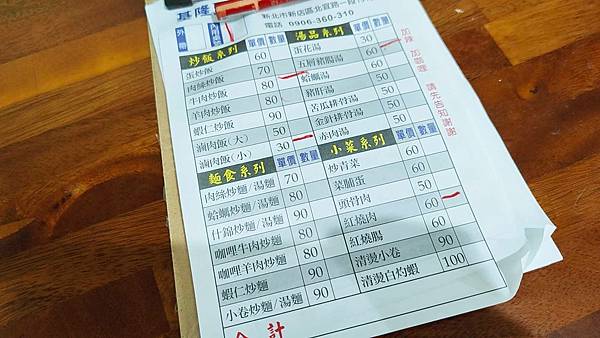 基隆
新北市新店區北宜路一段
電話 0906-360-310
外帶
炒飯系列 單價 數量
蛋炒飯 60
肉絲炒飯 70
牛肉炒飯 80
羊肉炒飯 80
蝦仁炒飯 90
滷肉飯(大) 50
滷肉飯(小) 30
湯品系列 單價 數量
蛋花湯 30
五層豬腸湯 60
蛤蠣湯 50
豬肝湯 50
苦瓜排骨湯 50
金針排骨湯 50
赤肉湯 50
加辣 加咖哩 請先告知謝謝
麵食系列 單價 數量
肉絲炒麵/湯麵 70
蛤蠣炒麵/湯麵 80
什錦炒麵/湯麵 90
咖哩牛肉炒麵 80
咖哩羊肉炒麵 80
蝦仁炒麵 90
小卷炒麵/湯麵 90
小菜系列 單價 數量
炒青菜 60
菜脯蛋 60
頭骨肉 50
紅燒肉 60
紅燒腸 60
清燙小卷 90
清燙白灼蝦 100
計